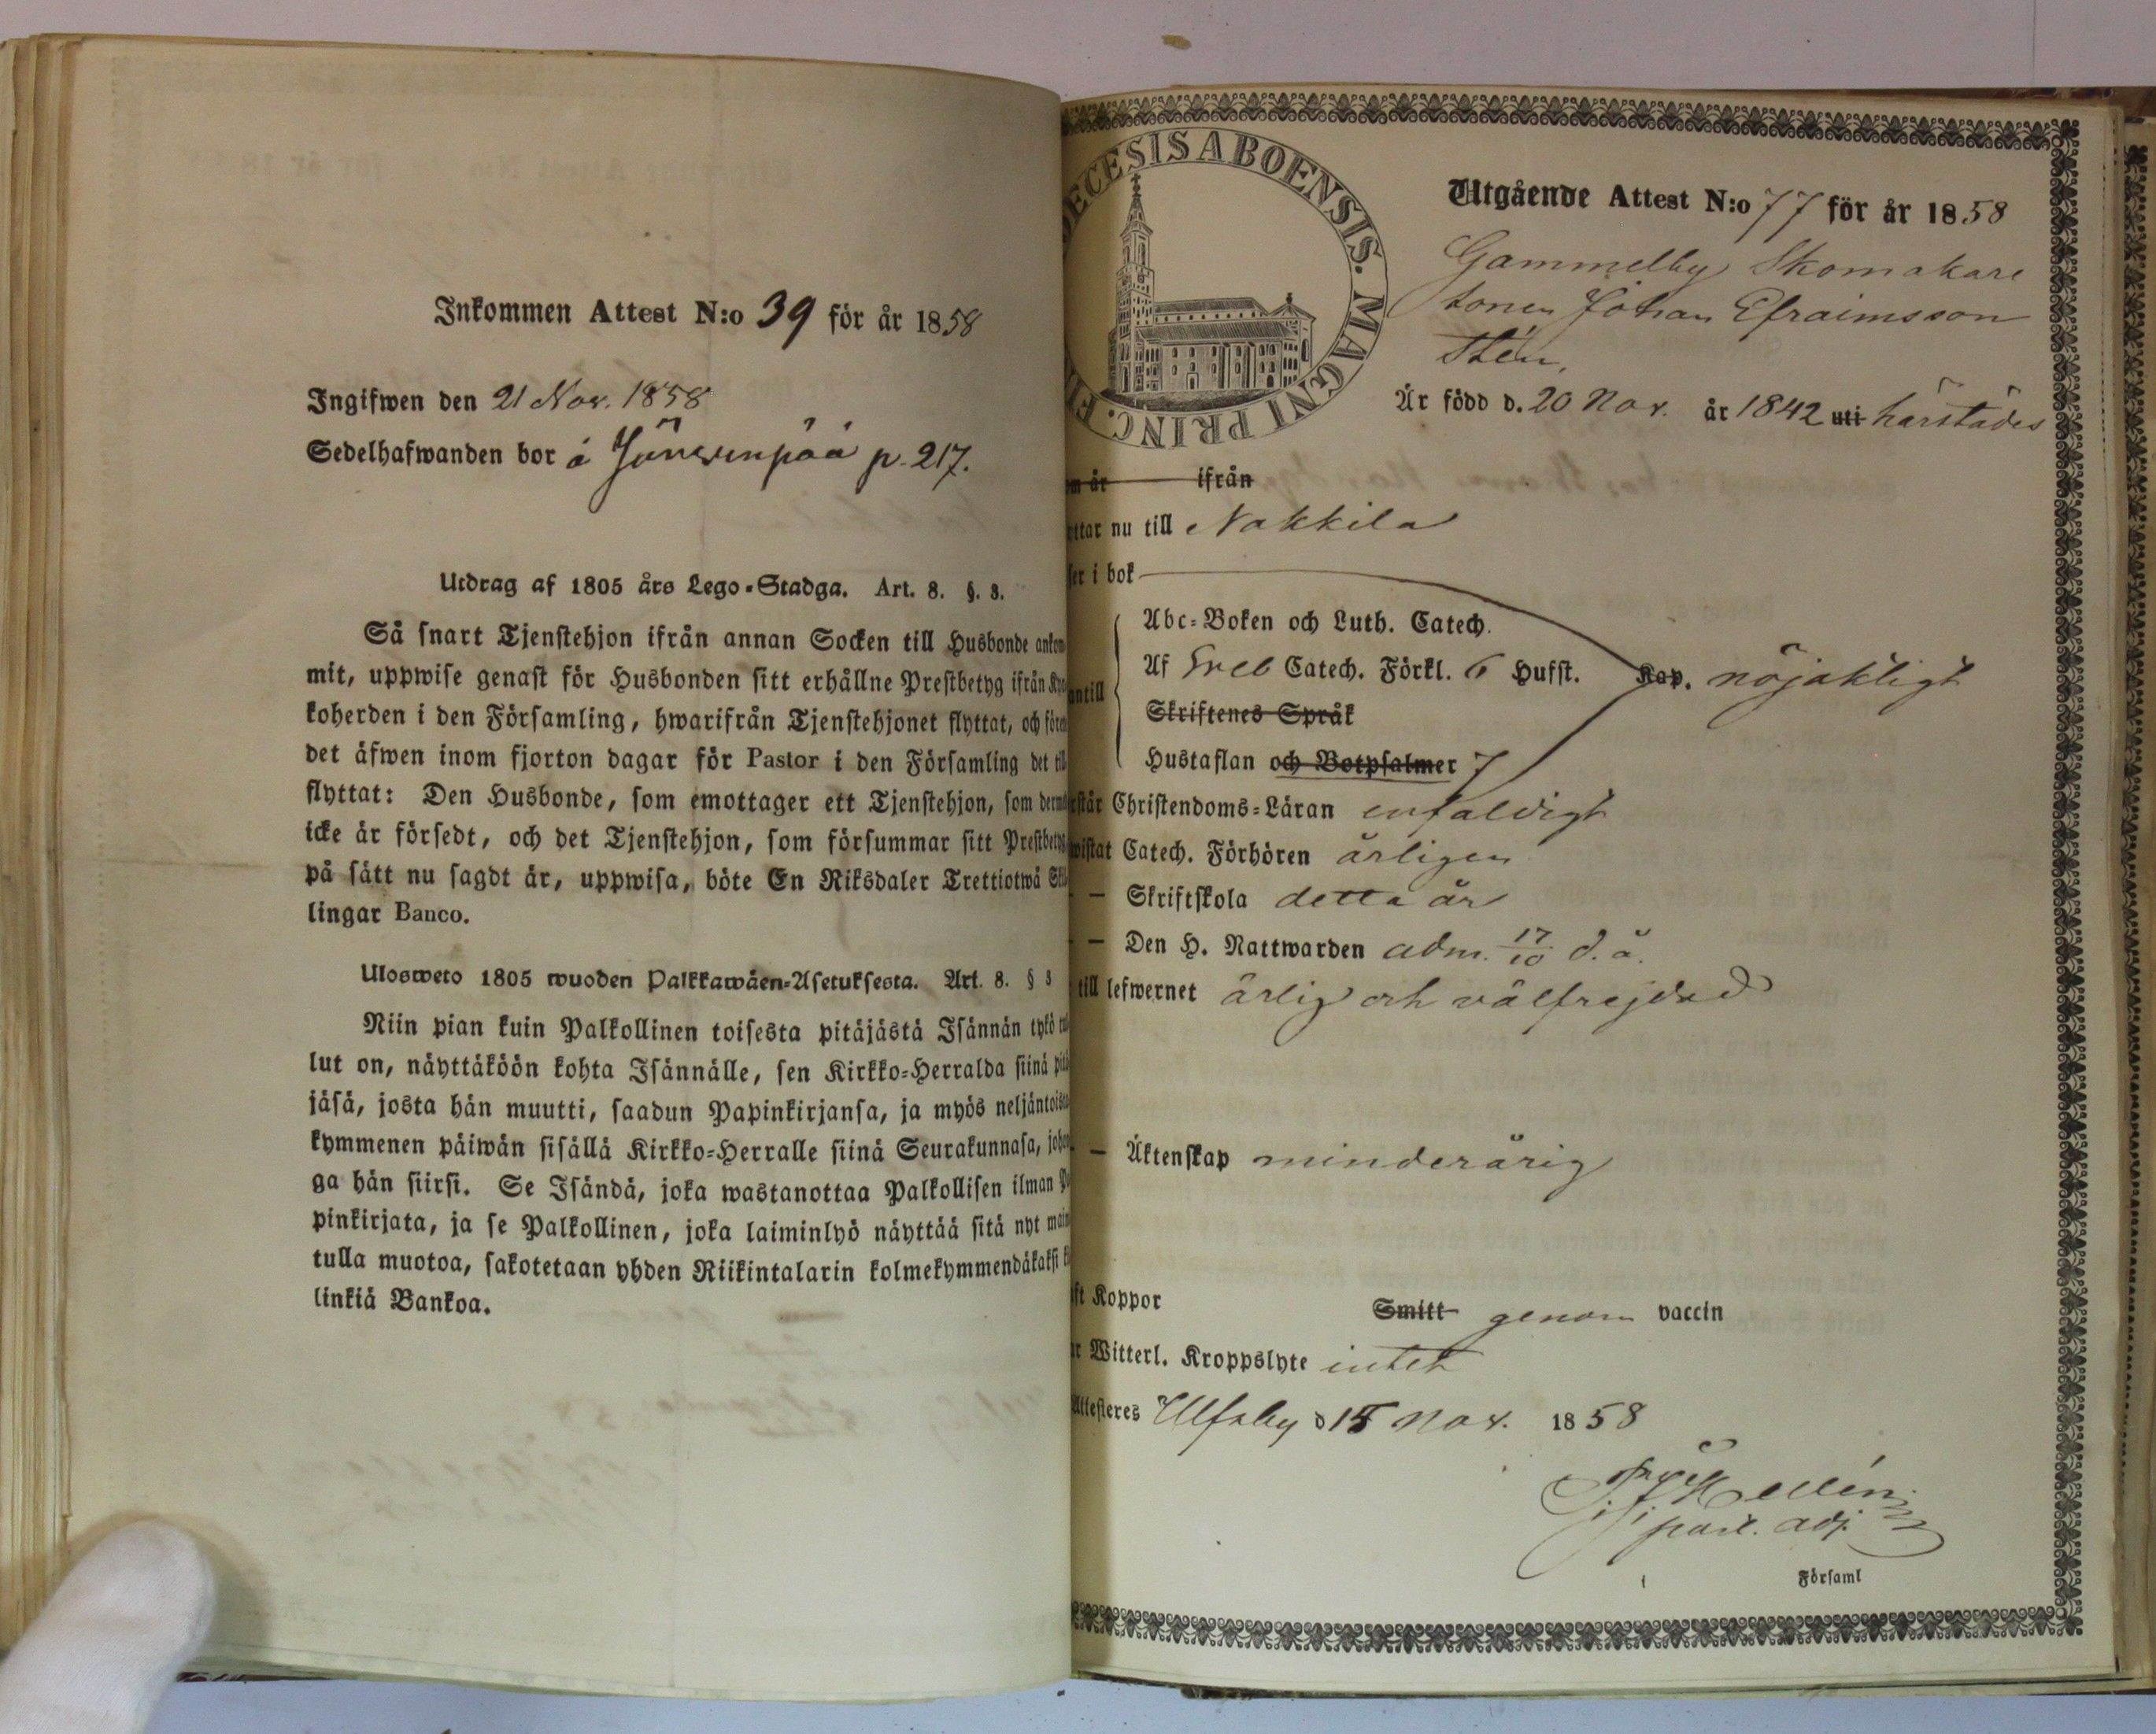 Inkommen Attest N:o 39 för år 1858
Ingifwen den 21 Nov. 1858
Sedelhafwanden bor å p. 217.
Utdrag af 1805 års Lego-Stadga. Art. 8. §. 3.
Så snart Tjenstehjon ifrån annan Socken till Husbonde ankom
mit, uppwise genast för Husbonden sitt erhållne Prestbetyg ifrån Kyr
koherden i den Församling, hwarifrån Tjenstehjonet flyttat, och före
det äfwen inom fjorton dagar för Pastor i den Församling det till
flyttat: Den Husbonde, som emottager ett Tjenstehjon, som dermed
icke är försedt, och det Tjenstehjon, som försummar sitt Prestbetyg
på sätt nu sagdt är, uppwisa, böte En Riksdaler Trettiotwå Skil
lingar Banco.
Ulosweto 1805 wuoden Palkkawäen-Asetuksesta. Art. 8. § 3
Niin pian kuin Palkollinen toisesta pitäjästä Isännän tykö tul
lut on, näyttäköön kohta Isännälle, sen Kirkko-Herralda siinä pitä
jäsä, josta hän muutti, saadun Papinkirjansa, ja myös neljäntoista
kymmenen päiwän sisällä Kirkko-Herralle siinä Seurakunnasa, johon
ga hän siirsi. Se Isändä, joka wastanottaa Palkollisen ilman Pa
pinkirjata, ja se Palkollinen, joka laiminlyö näyttää sitä nyt main
tulla muotoa, sakotetaan yhden Riikintalarin kolmekymmendäkaksi kil
linkiä Bankoa.
DECESIS ABOENSIS. MAGNI PRINC. FI
Utgående Attest N:o 77 för år 1858
Gammelby Skomakare
sonen Johan Efraimsson
Stén,
Är född d. 20 Nov. år 1842 uti härstädes
m år ifrån
ttar nu till Nakkila
ser i bok
Abc-Boken och Luth. Catech.
Af Sveb Catech. Förkl. 6 Hufst. Kap. nöjaktligt
antill
Skriftenes Språk
Hustaflan och Botpsalmer 7
rstår Christendoms-Läran enfaldigt
wistat Catech. Förhören årligen
— Skriftskola detta år
— Den H. Nattwarden adm. 17/10 d. å.
till lefwernet ärlig och välfrejdad
— Äktenskap minderårig
ft Koppor Smitt genom vaccin
r Witterl. Kroppslyte intet
Attesteres Ulfsby d 15 Nov. 1858
Hellén
past. adj.
i Församl